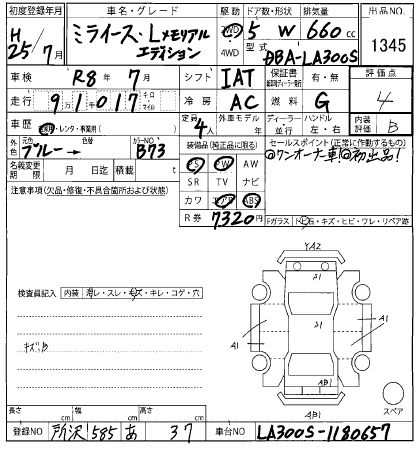 初度登録年月 車名・グレード 駆動 ドア数・形状 排気量 出品NO.
H 25/7月 ミライース・Lメモリアルエディション 2WD 4WD 5 W 660 cc 1345
型式 DBA-LA300S
車検 R8年7月 シフト IAT 保証書 有・無 評価点
走行 9万1千017 キロ マイル 冷房 AC 燃料 G 4
車歴 自家・レンタ・事業用( ) 定員 4人 外車モデル 年 ディーラー 並行 ハンドル 左・右 内装評価 B
外色 元色 ブルー → 色替 カラーNO. B73 装備品(純正品に限る) セールスポイント(正常に作動するもの)
@ワンオーナー車!@初出品!
名義変更期限 月 日迄 積載 t PS PW AW
SR TV ナビ
注意事項(欠品・修復・不具合箇所および状態) カワ エアB ABS
R券 7320円 Fガラス トビ石・キズ・ヒビ・ワレ・リペア跡
YA2
S1
検査員記入 内装 汚レ・スレ・キズ・キレ・コゲ・穴
A1 A1
キズ、B
S1
AB1
AB1 スペア
長さ cm 幅 cm 高さ cm
登録NO 所沢 585 あ 37 車台NO LA300S-1180657